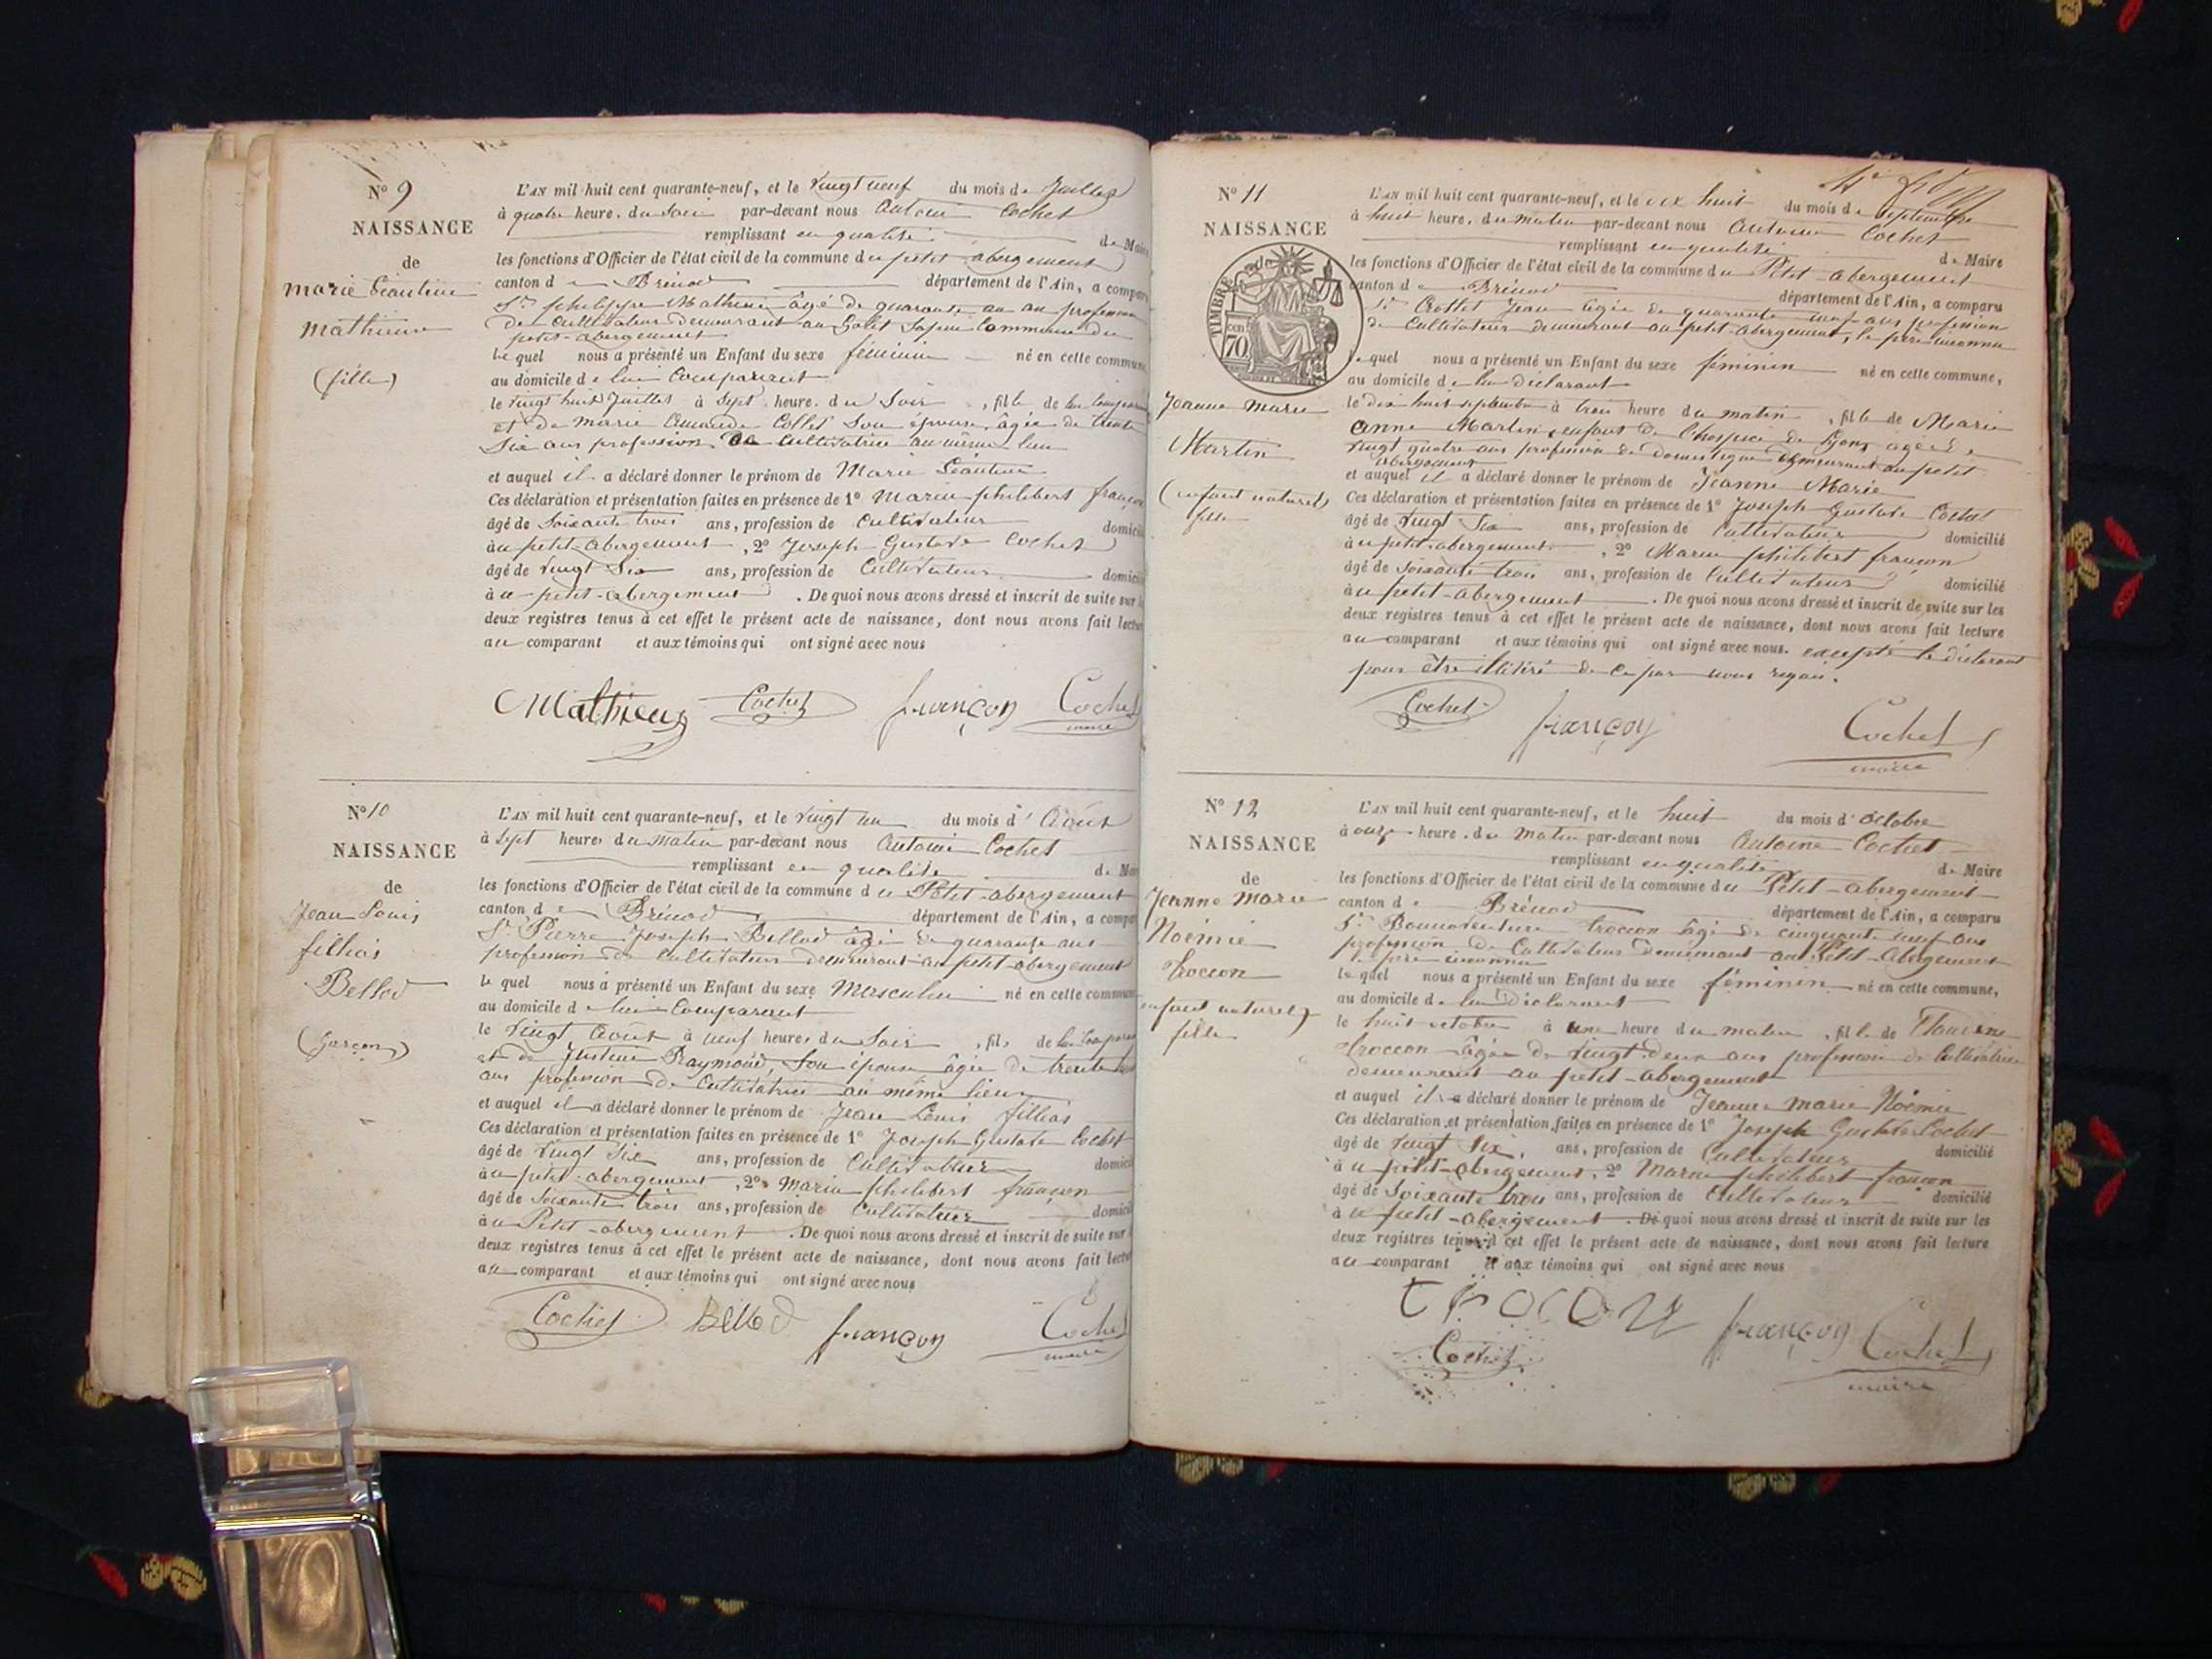 N° 9
NAISSANCE
de
Marie Léontine
Mathieu
(fille)
L'AN mil huit cent quarante-neuf, et le vingt neuf du mois de Juillet
à quatre heure. du soir par-devant nous Antoine Cochet
remplissant en qualité de Maire
les fonctions d'Officier de l'état civil de la commune du petit-abergement
canton de Brénod département de l'Ain, a comparu
Sr philippe Mathieu âgé de quarante un an profession
de Cultivateur demeurant au Commune du
petit-abergement
Le quel nous a présenté un Enfant du sexe féminin né en cette commune
au domicile de lui Comparant
le vingt huit Juillet à sept heure. du Soir, fille de lui Comparant
et de Marie Collet son épouse, âgée de trente
Six ans profession de Cultivatrice au même lieu
et auquel il a déclaré donner le prénom de Marie Léontine
Ces déclaration et présentation faites en présence de 1° Marin philibert françon
âgé de Soixante trois ans, profession de Cultivateur domicilié
au petit-abergement, 2° Joseph Gustave Cochet
âgé de vingt Six ans, profession de Cultivateur domicilié
au petit-abergement. De quoi nous avons dressé et inscrit de suite sur les
deux registres tenus à cet effet le présent acte de naissance, dont nous avons fait lecture
au comparant et aux témoins qui ont signé avec nous
Mathieu Cochet françon Cochet
maire
N° 10
NAISSANCE
de
Jean Louis
fillias
Bellod
(Garçon)
L'AN mil huit cent quarante-neuf, et le vingt un du mois d'Août
à sept heures du matin par-devant nous Antoine Cochet
remplissant en qualité de Maire
les fonctions d'Officier de l'état civil de la commune du Petit-abergement
canton de Brénod département de l'Ain, a comparu
Sr Pierre Joseph Bellod âgé de quarante ans
profession de Cultivateur demeurant au petit-abergement
le quel nous a présenté un Enfant du sexe Masculin né en cette commune
au domicile de lui Comparant
le vingt Août à neuf heures du Soir, fils de lui Comparant
et de Justine Raymond, Son épouse âgée de trente
ans profession de Cultivatrice au même lieu
et auquel il a déclaré donner le prénom de Jean Louis fillias
Ces déclaration et présentation faites en présence de 1° Joseph Gustave Cochet
âgé de vingt Six ans, profession de Cultivateur domicilié
au petit-abergement, 2° Marin philibert françon
âgé de Soixante trois ans, profession de Cultivateur domicilié
au Petit-abergement. De quoi nous avons dressé et inscrit de suite sur
deux registres tenus à cet effet le présent acte de naissance, dont nous avons fait lecture
au comparant et aux témoins qui ont signé avec nous
Cochet Bellod françon Cochet
maire
N° 11
NAISSANCE
TIMBRE
70
Jeanne Marie
Martin
(enfant naturel)
fille
L'AN mil huit cent quarante-neuf, et le dix huit du mois de Septembre
à huit heure. du matin par-devant nous Antoine Cochet
remplissant en qualité de Maire
les fonctions d'Officier de l'état civil de la commune du Petit-abergement
canton de Brénod département de l'Ain, a comparu
Sr Crottet Jean âgé de quarante neuf ans profession
de Cultivateur demeurant au petit-abergement, le père inconnu
le quel nous a présenté un Enfant du sexe féminin né en cette commune,
au domicile de lui déclarant
le dix huit septembre à trois heure du matin, fille de Marie
Anne Martin, enfant de l'hospice de Lyon, âgée de
vingt quatre ans profession de domestique demeurant au petit
abergement
et auquel il a déclaré donner le prénom de Jeanne Marie
Ces déclaration et présentation faites en présence de 1° Joseph Gustave Cochet
âgé de vingt Six ans, profession de Cultivateur domicilié
au petit-abergement, 2° Marin philibert françon
âgé de soixante trois ans, profession de Cultivateur domicilié
au petit-abergement. De quoi nous avons dressé et inscrit de suite sur les
deux registres tenus à cet effet le présent acte de naissance, dont nous avons fait lecture
au comparant et aux témoins qui ont signé avec nous. excepté le déclarant
pour être illitéré de ce par nous requis.
Cochet françon Cochet
maire
N° 12
NAISSANCE
de
Jeanne Marie
Noémie
Troccon
enfant naturel)
fille
L'AN mil huit cent quarante-neuf, et le huit du mois d'Octobre
à onze heure. du matin par-devant nous Antoine Cochet
remplissant en qualité de Maire
les fonctions d'Officier de l'état civil de la commune du Petit-abergement
canton de Brénod département de l'Ain, a comparu
Sr Bonnaventure troccon âgé de cinquante neuf ans
profession de Cultivateur demeurant au Petit-Abergement
le père inconnu
le quel nous a présenté un Enfant du sexe féminin né en cette commune,
au domicile de lui Déclarant
le huit octobre à une heure du matin, fille de
troccon âgée de vingt-deux ans profession de Cultivatrice
demeurant au petit-abergement
et auquel il a déclaré donner le prénom de Jeanne Marie Noémie
Ces déclaration et présentation faites en présence de 1° Joseph Gustave Cochet
âgé de vingt Six, ans, profession de Cultivateur domicilié
au petit-abergement, 2° Marin philibert françon
âgé de Soixante trois ans, profession de Cultivateur domicilié
au petit-abergement. De quoi nous avons dressé et inscrit de suite sur les
deux registres tenus à cet effet le présent acte de naissance, dont nous avons fait lecture
au comparant et aux témoins qui ont signé avec nous
trocon françon Cochet
Cochet maire